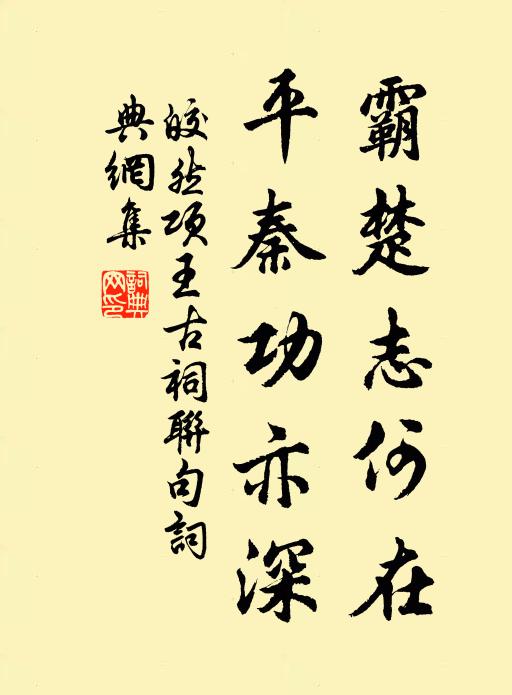 霸楚志何在
平秦功亦深
皎然項王古祠聯句詞
典網集
詞典
网印